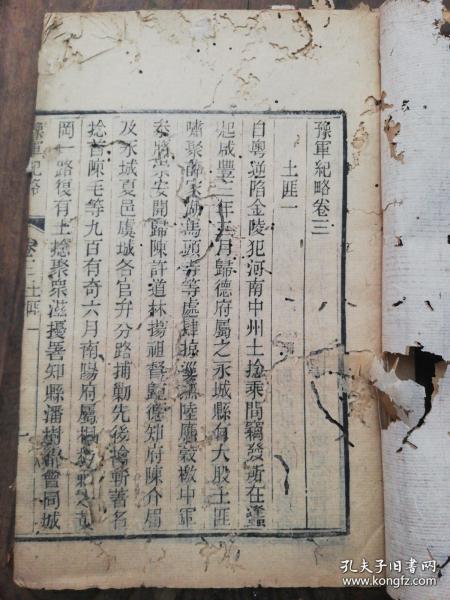 豫軍紀略卷三
土匪一
自粵逆陷金陵犯河南中州土捻乘間竊發所在蠭
起咸豐三年五月歸德府屬之永城縣有大股土匪
嘯聚薛家湖馬頭寺等處肆掠巡撫陸應穀檄中軍
叅將崇安開歸陳許道林揚祖督歸德知府陳介眉
及永城夏邑虞城各官弁分路捕勦先後擒斬著名
捻首陳毛等九百有奇六月南陽府屬桐柏縣之黃
岡一路復有土捻聚眾滋擾署知縣潘樹霖會同城
豫軍紀略
卷三土匪一
孔夫子旧书网
www.kongfz.com